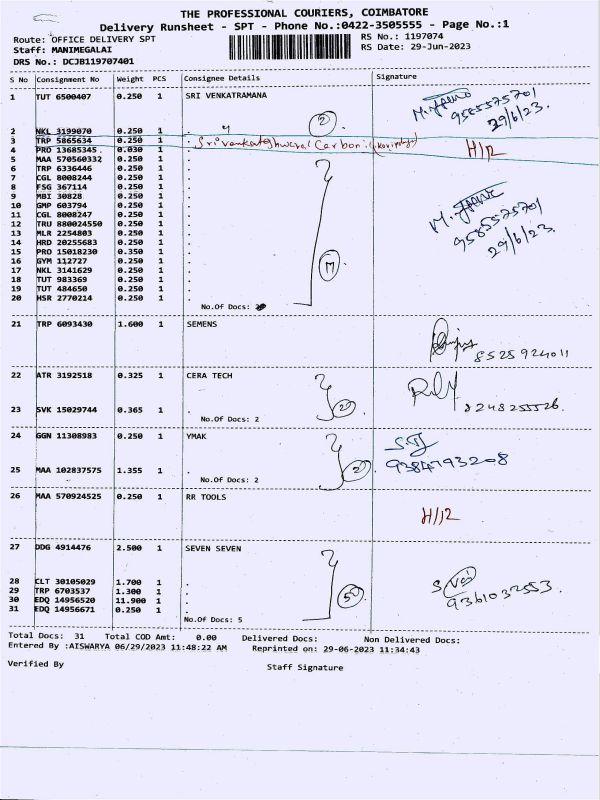 THE PROFESSIONAL COURIERS, COIMBATORE
Delivery Runsheet - SPT - Phone No.:0422-3505555 - Page No.:1
Route: OFFICE DELIVERY SPT
Staff: MANIMEGALAI
DRS No.: DCJB119707401
RS No.: 1197074
RS Date: 29-Jun-2023
S No Consignment No Weight PCS Consignee Details Signature
1 TUT 6500407 0.250 1 SRI VENKATRAMANA
9585575701
29/6/23.
2 NKL 3199070 0.250 1 . 2
3 TRP 5865634 0.250 1 . Sri Venkateshwaral Carbon. H/12
4 PRO 13685345 0.030 1 .
5 MAA 570560332 0.250 1 .
6 TRP 6336446 0.250 1 .
7 CGL 8008244 0.250 1 .
8 FSG 367114 0.250 1 .
9 MBI 30828 0.250 1 .
10 GMP 603794 0.250 1 .
11 CGL 8008247 0.250 1 .
12 TRU 880024550 0.250 1 .
13 MLR 2254803 0.250 1 .
14 HRD 20255683 0.250 1 .
15 PRO 15018230 0.350 1 .
16 GYM 112727 0.250 1 .
17 NKL 3141629 0.250 1 .
18 TUT 983369 0.250 1 .
19 TUT 484650 0.250 1 .
20 HSR 2770214 0.250 1 .
9585575701
29/6/23.
17
No.Of Docs:
21 TRP 6093430 1.600 1 SEMENS
8525924011
22 ATR 3192518 0.325 1 CERA TECH
23 SVK 15029744 0.365 1 . 2 8248255526.
No.Of Docs: 2
24 GGN 11308983 0.250 1 YMAK
9384793208
25 MAA 102837575 1.355 1 . 2
No.Of Docs: 2
26 MAA 570924525 0.250 1 RR TOOLS
H/12
27 DDG 4914476 2.500 1 SEVEN SEVEN
28 CLT 30105029 1.700 1 .
29 TRP 6703537 1.300 1 . 9361032553.
30 EDQ 14956520 11.900 1 . 5
31 EDQ 14956671 0.250 1 .
No.Of Docs: 5
Total Docs: 31 Total COD Amt: 0.00 Delivered Docs: Non Delivered Docs:
Entered By :AISWARYA 06/29/2023 11:48:22 AM Reprinted on: 29-06-2023 11:34:43
Verified By Staff Signature